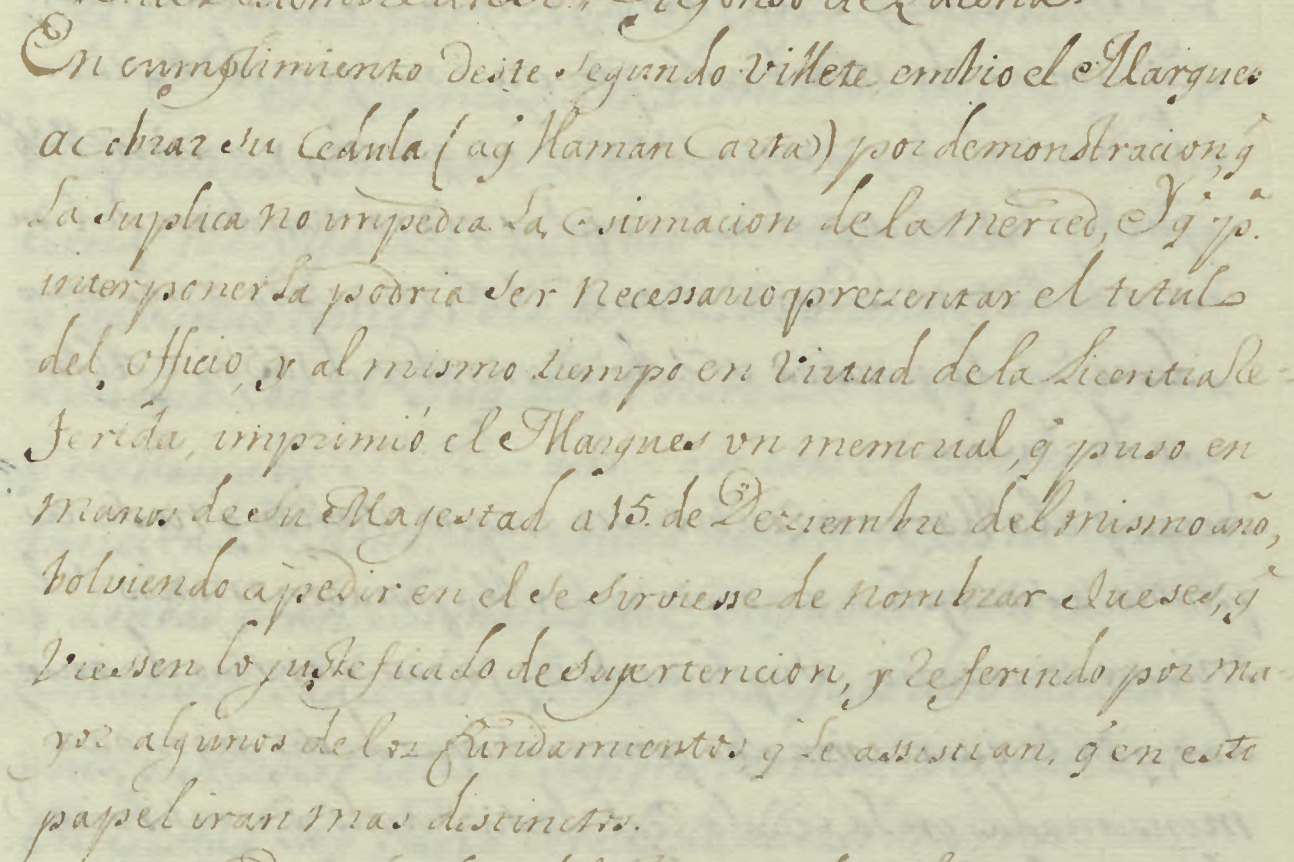 En cumplimiento deste segundo Villete embio el Marques
a cobrar su Cedula (aq̃ llaman Carta) por demonstracion, q̃
La suplica no impedia La, Estimacion de la merced, Y q̃ pᵃ.
interponerla podria ser necessario prezentar el titulo
del officio, y al mismo tiempo en Virtud de la Licentia Re-
ferida, imprimió el Marques vn memorial, q̃ puso en
manos de Su Magestad a 15. de Deziembre del mismo año,
bolviendo a pedir en el se sirviesse de nombrar Jueses, q̃
Viessen lo justeficado de su pertencion, y Referindo por ma-
yor algunos de los fundamientos q̃ le assistian, q̃ en este
papel iran mas distinctos.